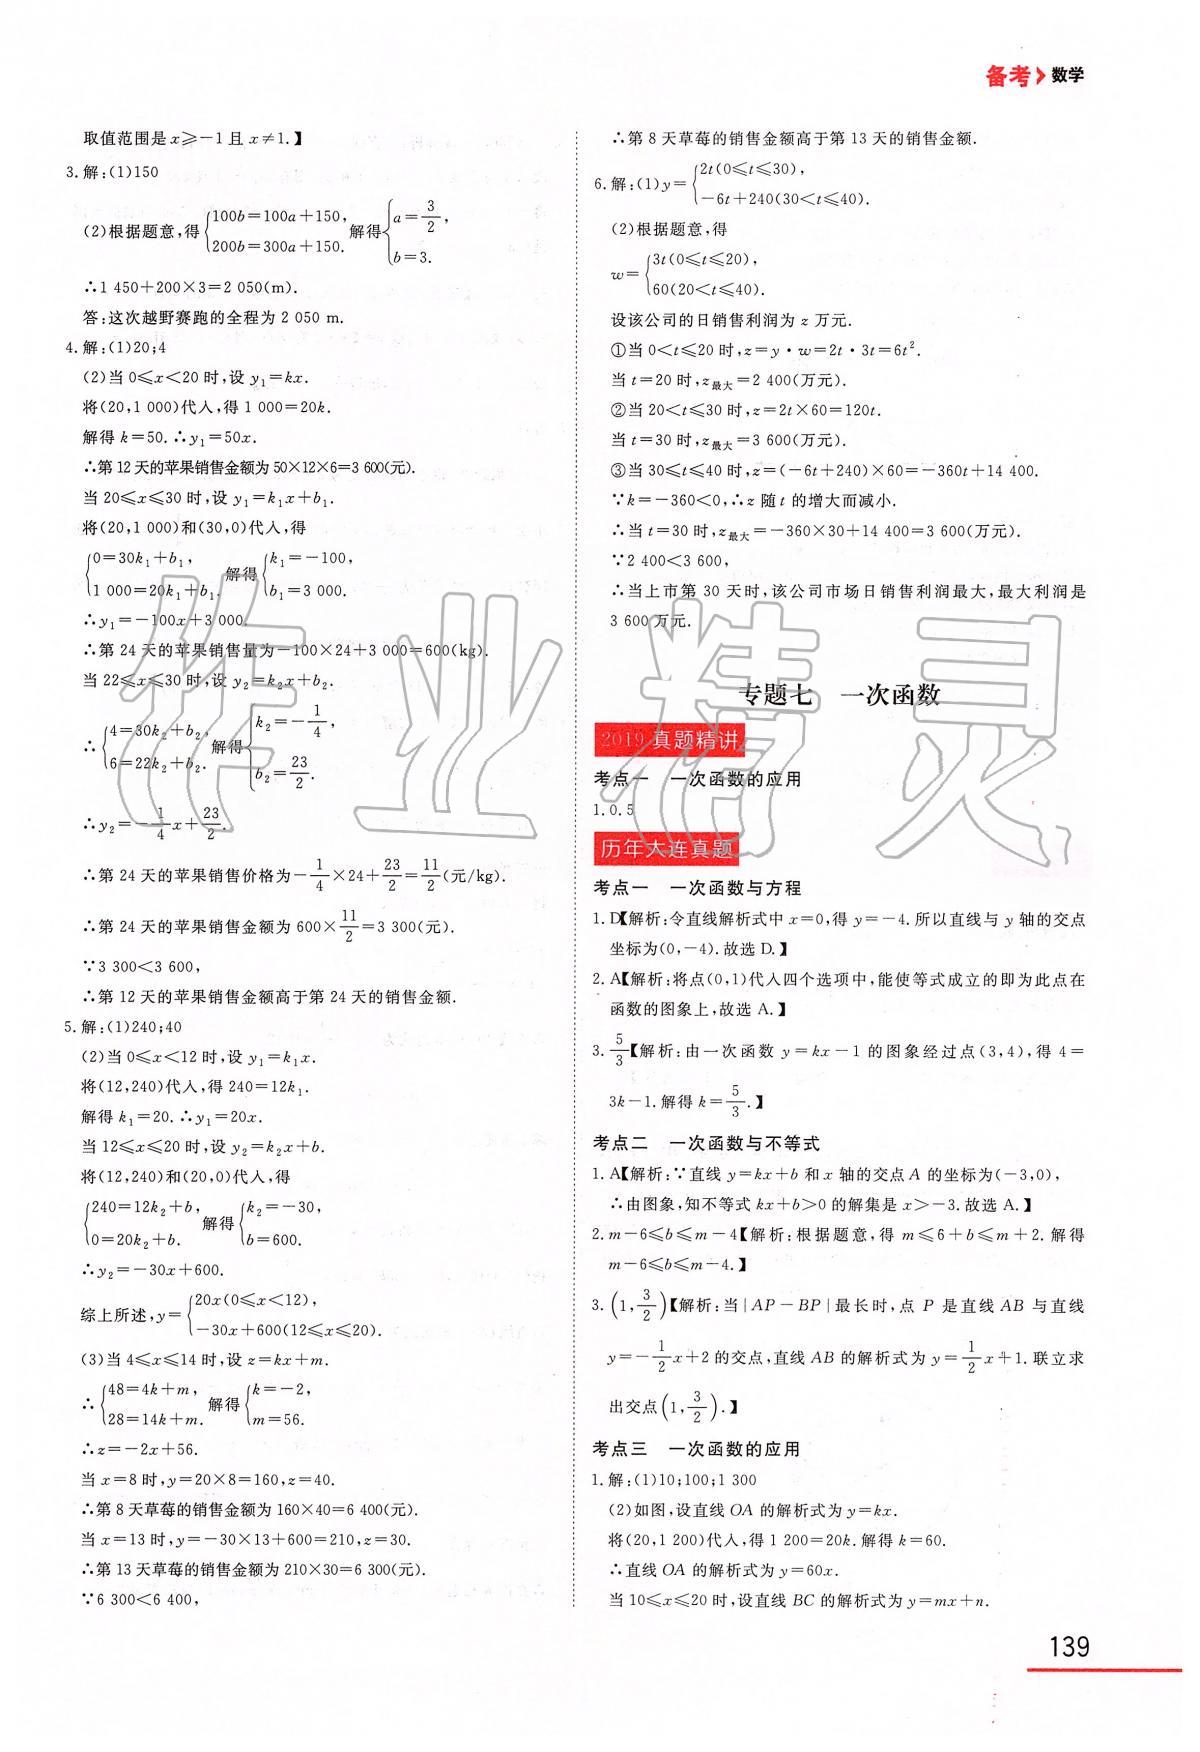 备考 数学
取值范围是 x≥－1 且 x≠1.】
3. 解:(1)150
(2)根据题意,得{100b=100a+150, 200b=300a+150. 解得{a=3/2, b=3.
∴1 450+200×3=2 050(m).
答:这次越野赛跑的全程为 2 050 m.
4. 解:(1)20;4
(2)当 0≤x<20 时,设 y₁=kx.
将(20,1 000)代入,得 1 000=20k.
解得 k=50.∴y₁=50x.
∴第 12 天的苹果销售金额为 50×12×6=3 600(元).
当 20≤x≤30 时,设 y₁=k₁x+b₁.
将(20,1 000)和(30,0)代入,得
{0=30k₁+b₁, 1 000=20k₁+b₁. 解得{k₁=－100, b₁=3 000.
∴y₁=－100x+3 000.
∴第 24 天的苹果销售量为－100×24+3 000=600(kg).
当 22≤x≤30 时,设 y₂=k₂x+b₂.
∴{4=30k₂+b₂, 6=22k₂+b₂. 解得{k₂=－1/4, b₂=23/2.
∴y₂=－1/4x+23/2.
∴第 24 天的苹果销售价格为－1/4×24+23/2=11/2(元/kg).
∴第 24 天的苹果销售金额为 600×11/2=3 300(元).
∵3 300<3 600,
∴第 12 天的苹果销售金额高于第 24 天的销售金额.
5. 解:(1)240;40
(2)当 0≤x<12 时,设 y₁=k₁x.
将(12,240)代入,得 240=12k₁.
解得 k₁=20.∴y₁=20x.
当 12≤x≤20 时,设 y₂=k₂x+b.
将(12,240)和(20,0)代入,得
{240=12k₂+b, 0=20k₂+b. 解得{k₂=－30, b=600.
∴y₂=－30x+600.
综上所述,y={20x(0≤x<12), －30x+600(12≤x≤20).
(3)当 4≤x≤14 时,设 z=kx+m.
∴{48=4k+m, 28=14k+m. 解得{k=－2, m=56.
∴z=－2x+56.
当 x=8 时,y=20×8=160,z=40.
∴第 8 天草莓的销售金额为 160×40=6 400(元).
当 x=13 时,y=－30×13+600=210,z=30.
∴第 13 天草莓的销售金额为 210×30=6 300(元).
∵6 300<6 400,
∴第 8 天草莓的销售金额高于第 13 天的销售金额.
6. 解:(1)y={2t(0≤t≤30), －6t+240(30<t≤40).
(2)根据题意,得
w={3t(0≤t≤20), 60(20<t≤40).
设该公司的日销售利润为 z 万元.
①当 0<t≤20 时,z=y·w=2t·3t=6t².
当 t=20 时,z最大=2 400(万元).
②当 20<t≤30 时,z=2t×60=120t.
当 t=30 时,z最大=3 600(万元).
③当 30≤t≤40 时,z=(－6t+240)×60=－360t+14 400.
∵k=－360<0,∴z 随 t 的增大而减小.
∴当 t=30 时,z最大=－360×30+14 400=3 600(万元).
∵2 400<3 600,
∴当上市第 30 天时,该公司市场日销售利润最大,最大利润是
3 600 万元.
专题七 一次函数
2019 真题精讲
考点一 一次函数的应用
1. 0.5
历年大连真题
考点一 一次函数与方程
1. D【解析:令直线解析式中 x=0,得 y=－4.所以直线与 y 轴的交点
坐标为(0,－4).故选 D.】
2. A【解析:将点(0,1)代入四个选项中,能使等式成立的即为此点在
函数的图象上,故选 A.】
3. 5/3【解析:由一次函数 y=kx－1 的图象经过点(3,4),得 4=
3k－1.解得 k=5/3.】
考点二 一次函数与不等式
1. A【解析:∵直线 y=kx+b 和 x 轴的交点 A 的坐标为(－3,0),
∴由图象,知不等式 kx+b>0 的解集是 x>－3.故选 A.】
2. m－6≤b≤m－4【解析:根据题意,得 m≤6+b≤m+2.解得
m－6≤b≤m－4.】
3. (1,3/2)【解析:当|AP－BP|最长时,点 P 是直线 AB 与直线
y=－1/2x+2 的交点,直线 AB 的解析式为 y=1/2x+1.联立求
出交点(1,3/2).】
考点三 一次函数的应用
1. 解:(1)10;100;1 300
(2)如图,设直线 OA 的解析式为 y=kx.
将(20,1 200)代入,得 1 200=20k.解得 k=60.
∴直线 OA 的解析式为 y=60x.
当 10≤x≤20 时,设直线 BC 的解析式为 y=mx+n.
139
作业精灵